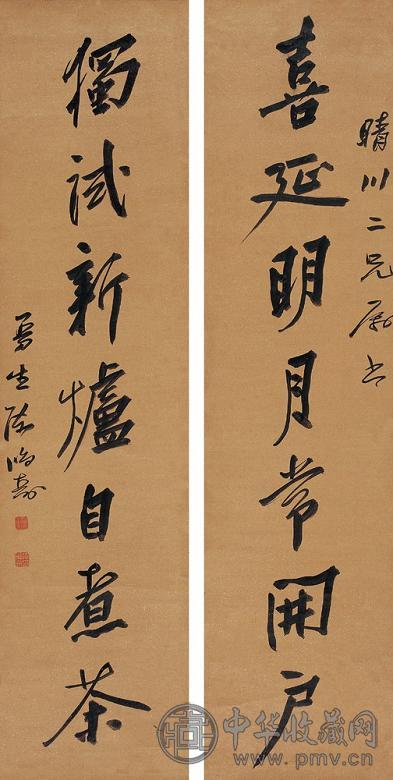 喜延明月常開戶
晴川二兄屬書
獨試新爐自煮茶
曼生陳鴻壽
中华收藏网
www.pmv.cn